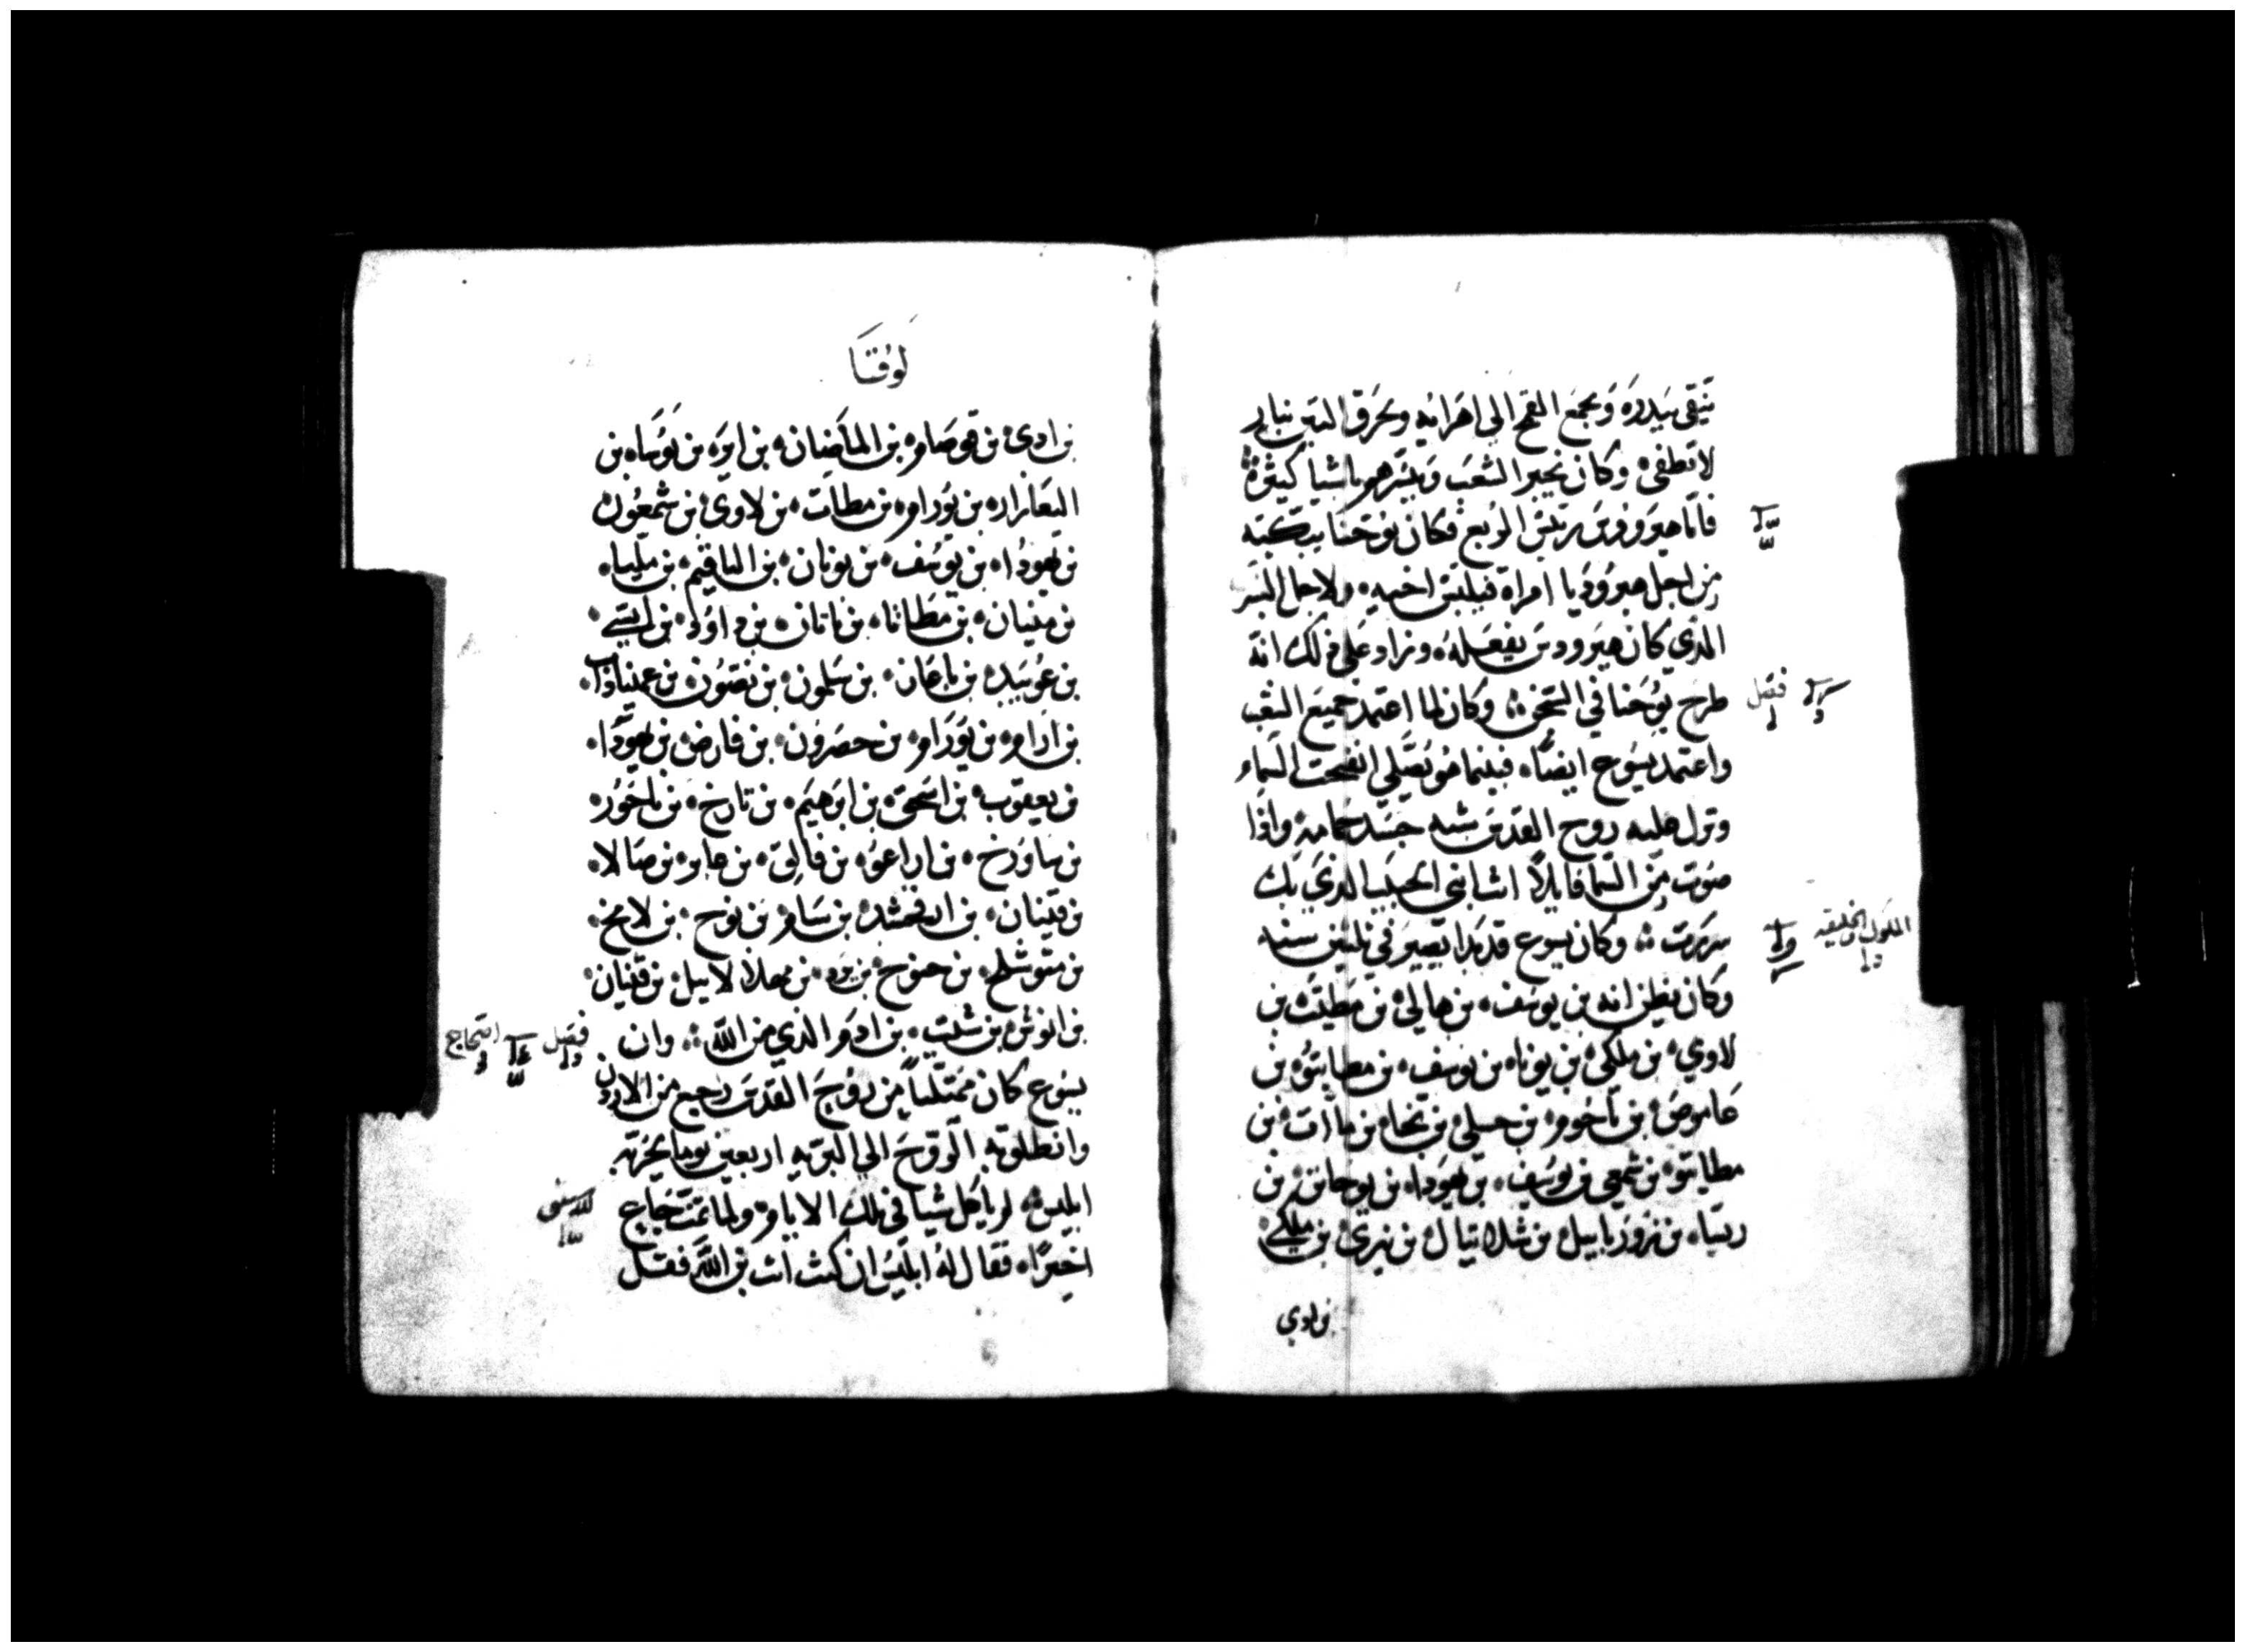 ينقي بيدره ويجمع القمح الي اهرائه ويحرق التبن بنار
لا تطفى وكان يخبر الشعب ويبشرهم باشيا كثيرة
فاما هيرودس رييس الربع فكان يوحنا يبكته
من اجل هيروديا امراة فيلبس اخيه ولاجل الشر
الذي كان هيرودس يفعله وزاد على ذلك انه
طرح يوحنا في السجن وكان لما اعتمد جميع الشعب
فصل
واعتمد يسوع ايضا فبينما هو يصلي انفتحت السماء
ونزل عليه روح القدس شبه جسد حمامة واذا
صوت من السما قايلا انت ابني الحبيب الذي بك
سررت وكان يسوع قد بدا يصير في ثلثين سنه
وكان يظن انه بن يوسف بن هالي بن مطيت بن
لاوي بن ملكي بن يونا بن يوسف بن مطاثيو بن
عاموص بن ناحوم بن حسلي بن نجا بن ماات بن
مطاثيو بن شمعي بن يوسف بن يهودا بن يوحانس بن
ريسا بن زوربابيل بن شلاتيال بن نيري بن ملكي
بن ادي
لوقا
بن ادي بن قوصام بن الماضان بن ايره بن يوسا بن
اليعازار بن يورام بن مطات بن لاوي بن شمعون
بن يهودا بن يوسف بن يونان بن الياقيم بن مليا
بن مينان بن مطاثا بن ناتان بن داوود بن ايسي
بن عوبيد بن باعاز بن سلمون بن نصون بن عميناداب
بن ارام بن يورام بن حصرون بن فارص بن يهودا
بن يعقوب بن اسحق بن ابرهيم بن تارخ بن ناحور
بن ساورخ بن اراعو بن فالق بن عابر بن صالا
بن قينان بن ارفخشد بن سام بن نوح بن لامخ
بن متوشلح بن حنوح بن يرد بن مهلالاييل بن قينان
بن انوش بن شيت بن ادم الذي من الله وان
فصل
يسوع كان ممتليا من روح القدس رجع من الاردن
وانطلق به الروح الي البريه اربعين يوما يجربه
ابليس لم ياكل شيا في تلك الايام ولما تمت جاع
اخيرا فقال له ابليس ان كنت انت بن الله فقل